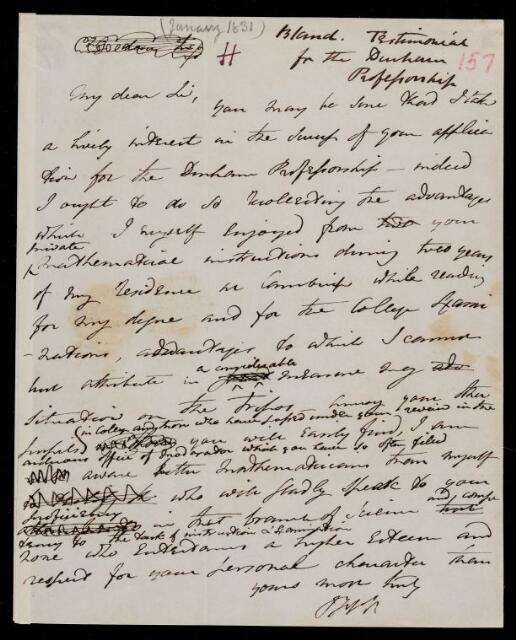 (January 1831)
Bland. Testimonial
for the Durham
Professorship
157
My dear Sir,
you may be sure that I take
a lively interest in the success of your applica
tion for the Durham Professorship – indeed
I ought to do so recollecting the advantages
which I myself enjoyed from your
private
mathematical instructions during two years
of my residence in Cambridge while reading
for my degree and for the College Exami
-nations, advantages to which I cannot
but attribute in a considerable measure my
situation on the Tripos. Among your other
pupils
in College and those who have passed under your review in the
you will easily find, I am
office of Moderator which you have so often filled
aware better Mathematicians than myself
who will gladly speak to your
proficiency
in that branch of Science and
to the task of instruction &
none who entertains a higher esteem and
respect for your personal character than
yours most truly